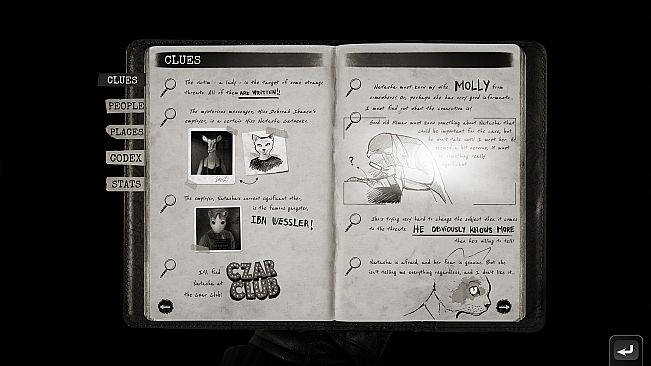 CLUES
PEOPLE
PLACES
CODEX
STATS
CLUES
The victim - a lady - is the target of some strange
threats. All of them ARE WRITTEN!!
The mysterious messenger, Miss Deborah
employer, is a certain Miss Natasha
The employer, Natasha's current significant other,
is the famous gangster,
IBN WESSLER!
I'll find
Natasha at
the Czar Club!
CZAR
CLUB
Natasha must know my wife MOLLY from
somewhere! Or, perhaps she has very good informants.
I must find out what the connection is!
Good old Elmar must know something about Natasha that
could be important for the case, but
he don't talk until I meet her. He
seemed a bit nervous, it must
be something really
significant.
? .
She's trying very hard to change the subject when it comes
to the threats. HE OBVIOUSLY KNOWS MORE
than he's willing to tell!
Natasha is afraid, and her fear is genuine. But she
isn't telling me everything regardless, and I don't like it...